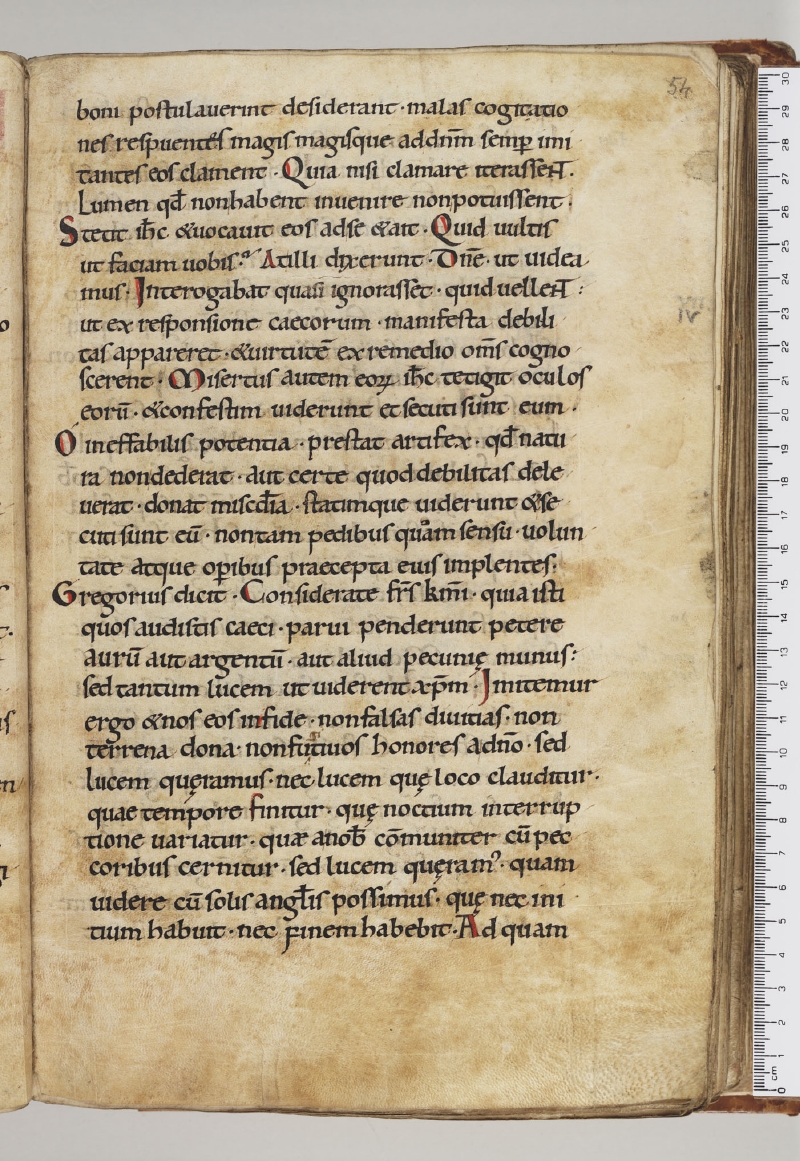 54
boni postulauerint desiderant · malas cogitatio
nes respuentes magis magisque addnm̄ semꝑ imi
tantes eos clament · Quia nisi clamare iterassent.
Lumen qđ nonhabent inuenire nonpotuissent.
Stetit ihc̄ &uocauit eos adse &ait · Quid uultis
ut faciam uobis. Atilli dixerunt · Dn̄e · ut uidea
mus · Interogabat quasi ignorasset · quid uellent :
ut ex responsione caecorum · manifesta debili
tas appareret · &uirtutē ex remedio om̄s cogno
scerent · Misertus autem eoꝝ ihc̄ tetigit oculos
eorū · &confestim uiderunt et secuti sunt eum ·
O ineffabilis potentia · prestat artifex · qđ natu
ra nondederat · aut certe quod debilitas dele
uerat · donat miscđia · statimque uiderunt &se
cuti sunt eū · nontam pedibus quam sensu · uolun
tate atque oꝑibus praecepta eius implentes.
Gregorius dicit · Considerate frs̄ km̄i · quia isti
quos audistis caeci · parui penderunt petere
aurū aut argentū · aut aliud pecunię munus :
sed tantum lucem ut uiderent xp̄m · Imitemur
ergo &nos eos infide · nonfalsas diuitias · non
terrena dona · nonfutiuos honores adn̄o · sed
lucem quęramus · nec lucem quę loco clauditur ·
quae tempore finitur · quę noctium interrup
tione uariatur · quæ anob̄ cōmuniter cū pec
coribus cernitur · sed lucem quęram᾽ · quam
uidere cū solis angƚis possimus · quę nec ini
tium habuit · nec finem habebit · Ad quam